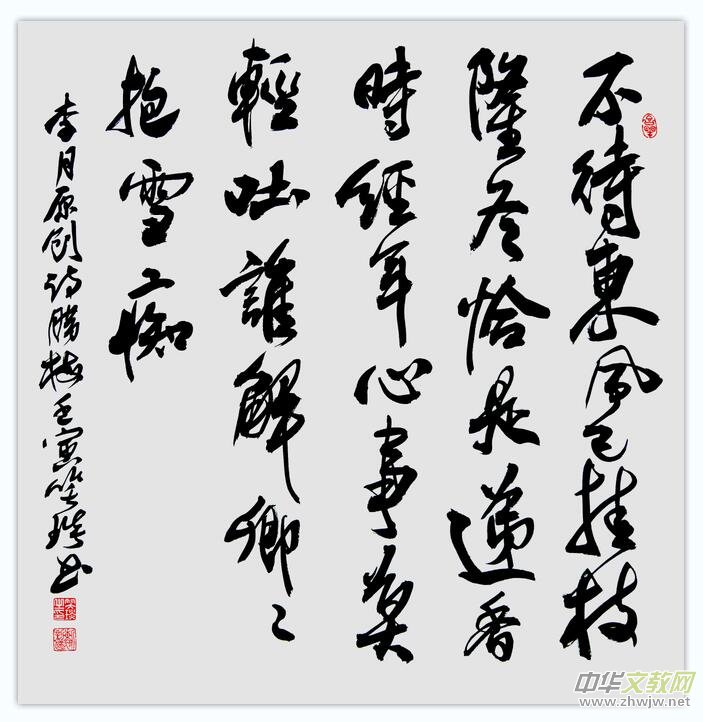 不待東風已挂枝
隆冬恰是遞香
時經年心事莫
輕吐誰解卿〻
抱雪痴
李月原创诗臘梅壬寅书
中华文教网
www.zhwjw.net